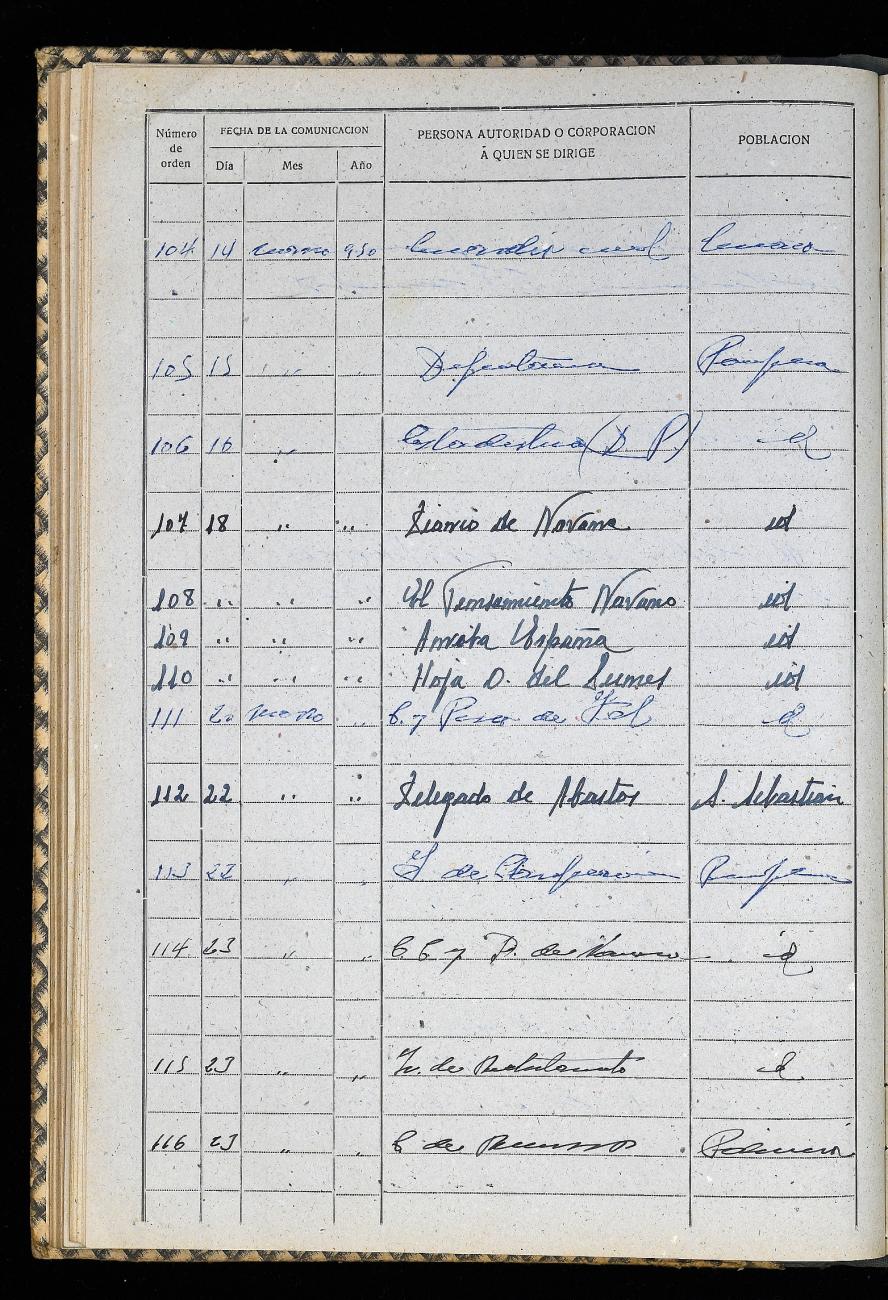 Número de orden
FECHA DE LA COMUNICACION
Día Mes Año
PERSONA AUTORIDAD O CORPORACION
Á QUIEN SE DIRIGE
POBLACION
104 14 marzo 950
105 15 " " Diputación Pamplona
106 16 " Estadística (D. P.) id
107 18 " " Diario de Navarra id
108 " " " El Pensamiento Navarro id
109 " " " Arriba España id
110 " " " Hoja O. del Lunes id
111 20 marzo " C. y Paro de id
112 22 " " Delegado de Abastos S. Sebastian
113 22 " " I de Pamplona
114 23 " " C. C y P. de Navarra id
115 23 " " de Reclutamiento id
116 23 " " C de Recursos Palencia